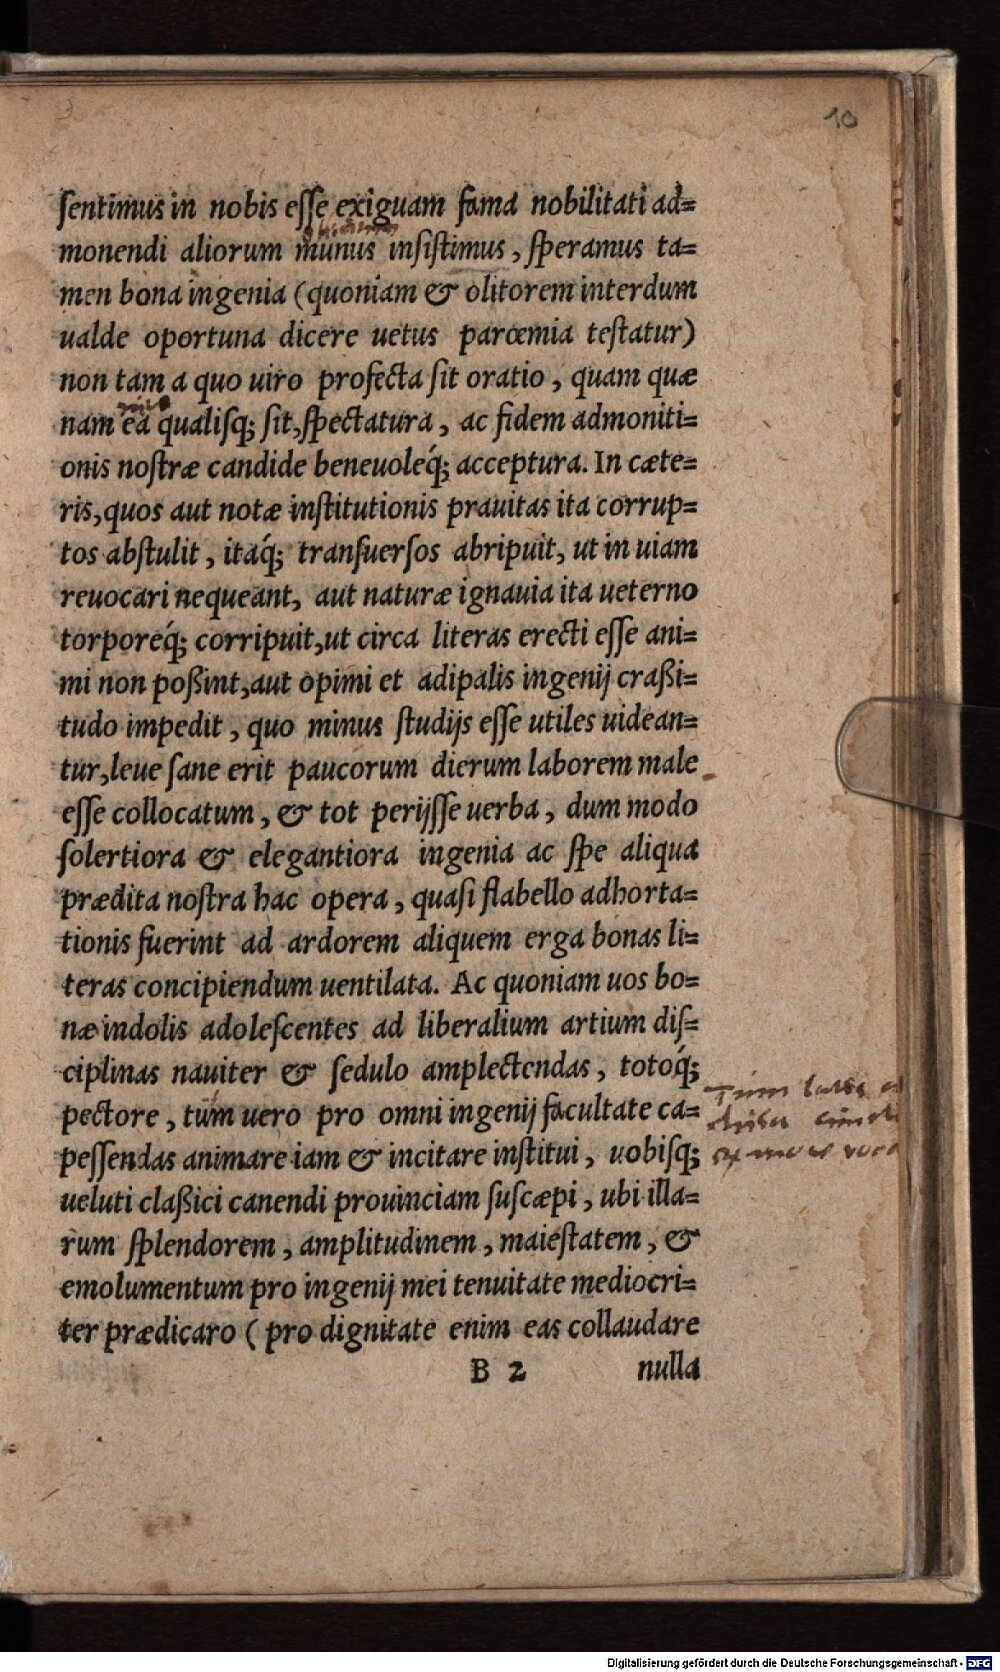 10
sentimus in nobis esse exiguam fama nobilitati ad=
monendi aliorum munus insistimus, speramus ta=
men bona ingenia (quoniam & olitorem interdum
ualde oportuna dicere uetus parœmia testatur)
non tam a quo uiro profecta sit oratio, quam quæ
nam ea qualisq; sit, spectatura, ac fidem admoniti=
onis nostræ candide beneuoleq́; acceptura. In cæte=
ris, quos aut notæ institutionis prauitas ita corrup=
tos abstulit, itaq́; transuersos abripuit, ut in uiam
reuocari nequeant, aut naturæ ignauia ita ueterno
torporeq́; corripuit, ut circa literas erecti esse ani=
mi non poßint, aut opimi et adipalis ingenij craßi=
tudo impedit, quo minus studijs esse utiles uidean=
tur, leue sane erit paucorum dierum laborem male
esse collocatum, & tot perijsse uerba, dum modo
solertiora & elegantiora ingenia ac spe aliqua
prædita nostra hac opera, quasi flabello adhorta=
tionis fuerint ad ardorem aliquem erga bonas li=
teras concipiendum uentilata. Ac quoniam uos bo=
næ indolis adolescentes ad liberalium artium dis=
ciplinas nauiter & sedulo amplectendas, totoq́;
pectore, tum uero pro omni ingenij facultate ca=
pessendas animare iam & incitare institui, uobisq;
ueluti claßici canendi prouinciam suscæpi, ubi illa=
rum splendorem, amplitudinem, maiestatem, &
emolumentum pro ingenij mei tenuitate mediocri=
ter prædicaro (pro dignitate enim eas collaudare
B 2 nulla
Digitalisierung gefördert durch die Deutsche Forschungsgemeinschaft - DFG